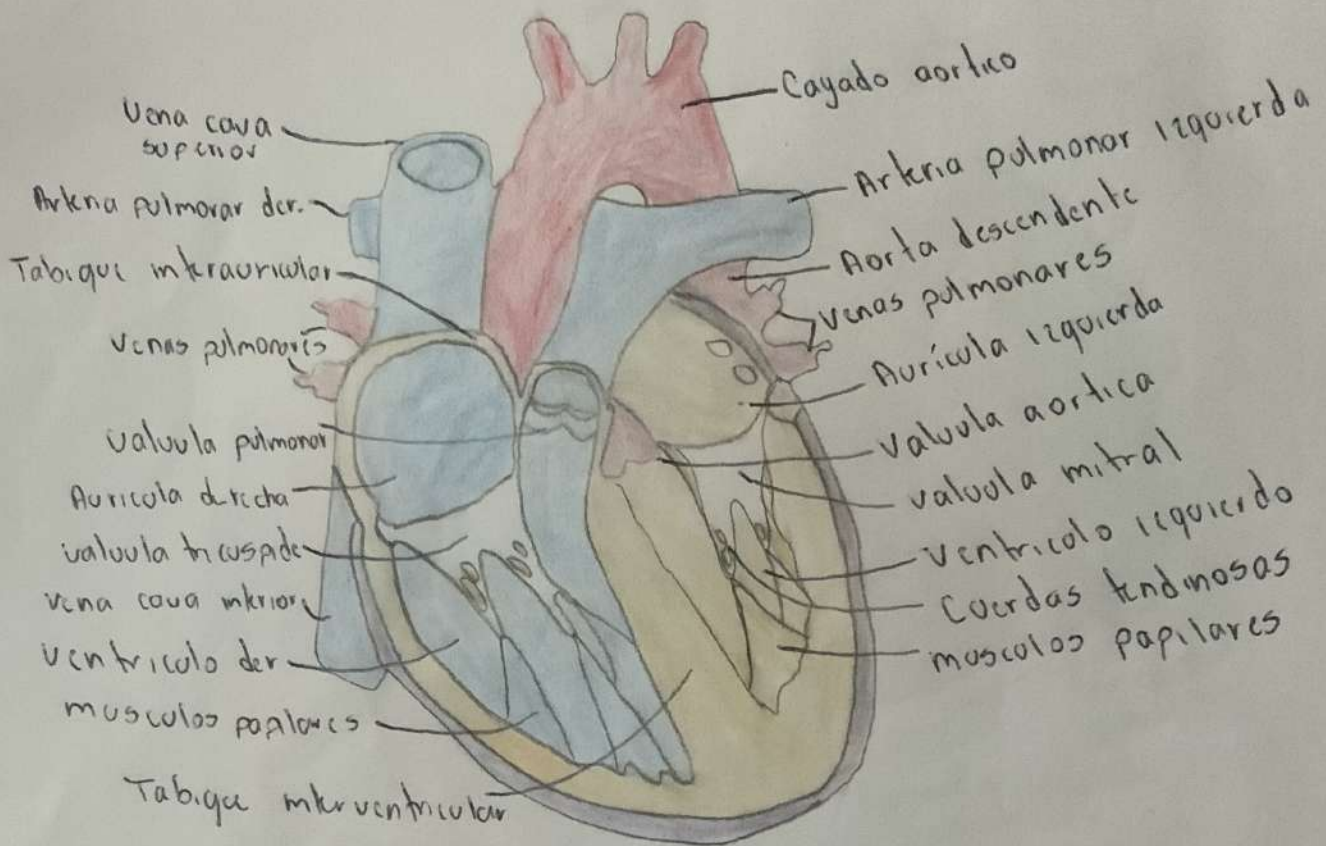 Vena cava
superior
Arteria pulmonar der.
Tabique interauricular
Venas pulmonares
valvula pulmonar
Auricula derecha
valvula tricuspide
vena cava inferior
ventriculo der
musculos papilares
Tabique interventricular
Cayado aortico
Arteria pulmonar izquierda
Aorta descendente
Venas pulmonares
Aurícula izquierda
valvula aortica
valvula mitral
ventriculo izquierdo
Cuerdas tendinosas
musculos papilares